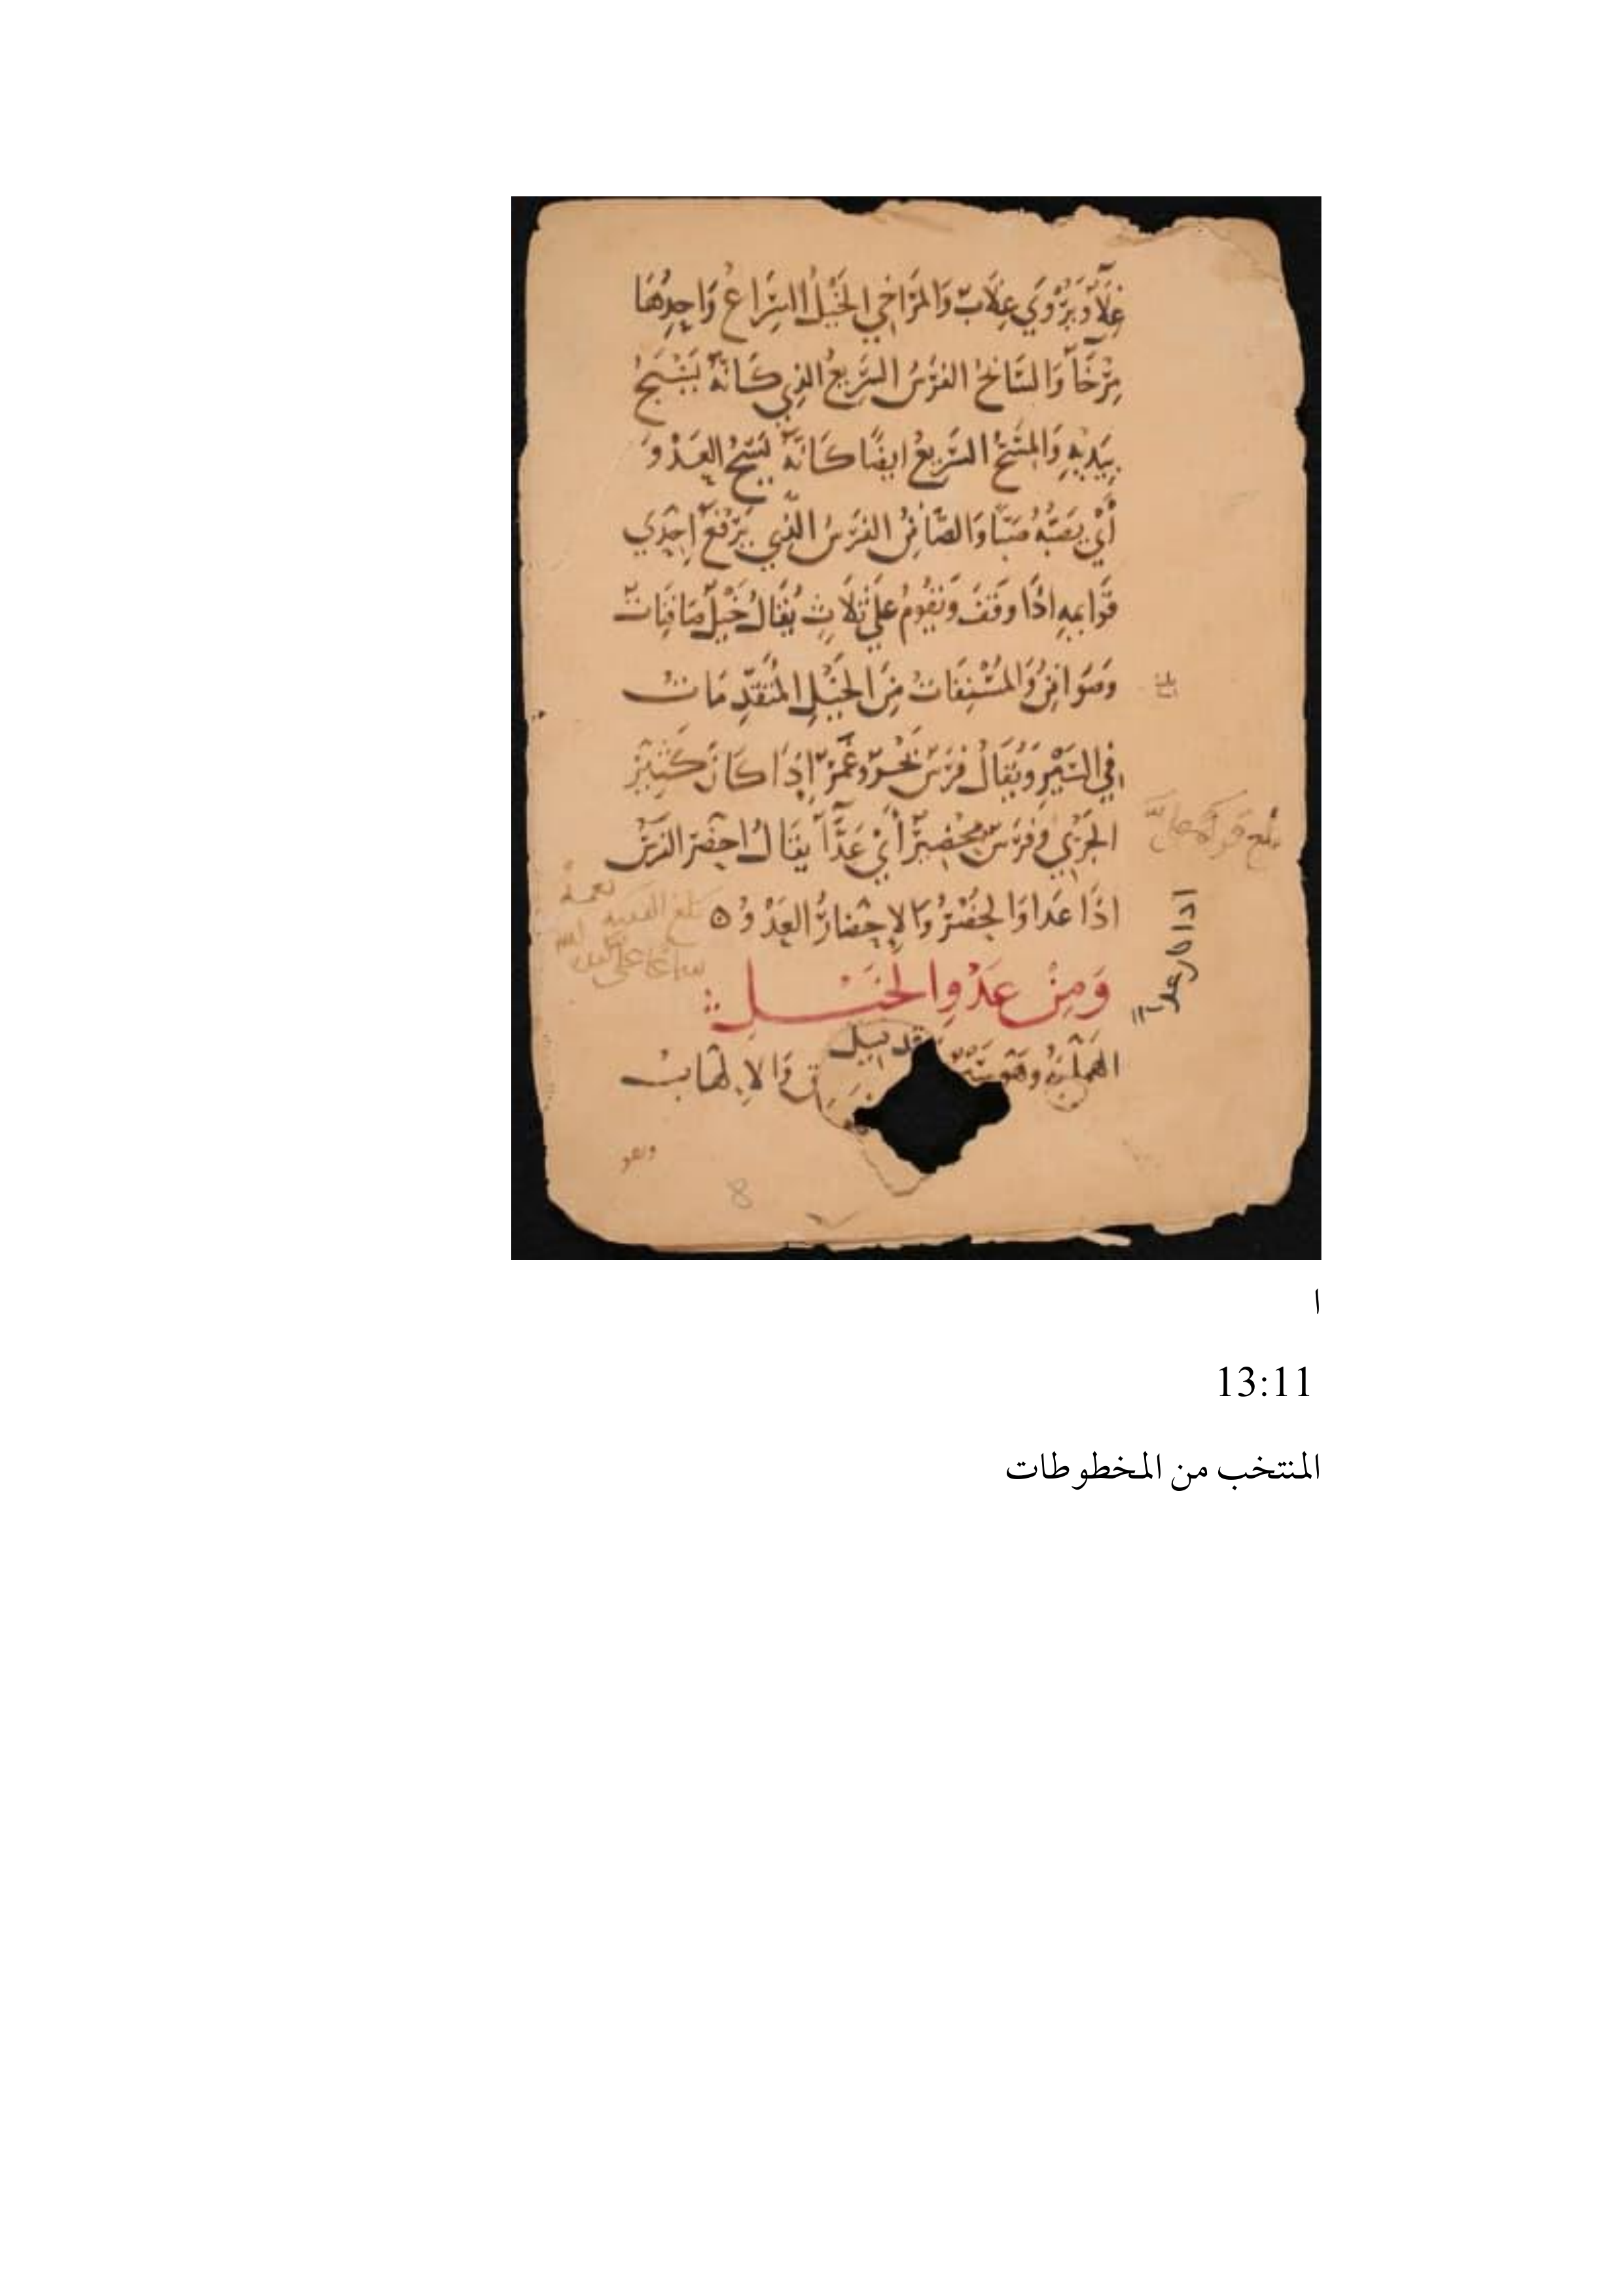 عِلَاءٌ وَيُرْوَي عِلَابٌ وَالمَرَاخِي الخَيْلُ السِّرَاعُ وَاحِدُهَا
مِرْخَآءٌ وَالسَّابِحُ الفَرَسُ السَّرِيعُ الذِي كَانَّهُ يَسْبَحُ
بِيَدَيْهِ وَالمِسَحُّ السَّرِيعُ ايضًا كَانَّهُ يَسُحُّ العَدْوَ
أَيْ يَصُبُّهُ صَبًّا وَالصَّافِنُ الفَرَسُ الَّذِي يَرْفَعُ اِحْدَي
قَوَايِمِهِ اذَا وَقَفَ وَيَقُومُ عَلَي ثَلَاثٍ يُقَالُ خَيْلٌ صَافِنَاتٌ
وَصَوَافِنُ وَالمُسْنِفَاتُ مِنَ الخَيْلِ المُتَقَدِّمَاتُ
فِي السَّيْرِ وَيُقَالُ فَرَسٌ بَحْرٌ وغَمْرٌ اِذَا كَانَ كَثِيرَ
الجَرْيِ وَفَرَسٌ مِحْضِيرٌ أَيْ عَدَّآءٌ يقَالُ احْضَرَ الفَرَسُ
اذَا عَدَا وَالحُضْرُ وَالاِحْضَارُ العَدْوُ ه
وَمِنْ عَدْوِ الخَيْلِ
الهَمْلَجَةُ وَهُوَ سَيْرٌ وَالاِلْهَابُ
وهو
8
ا
13:11
المنتخب من المخطوطات